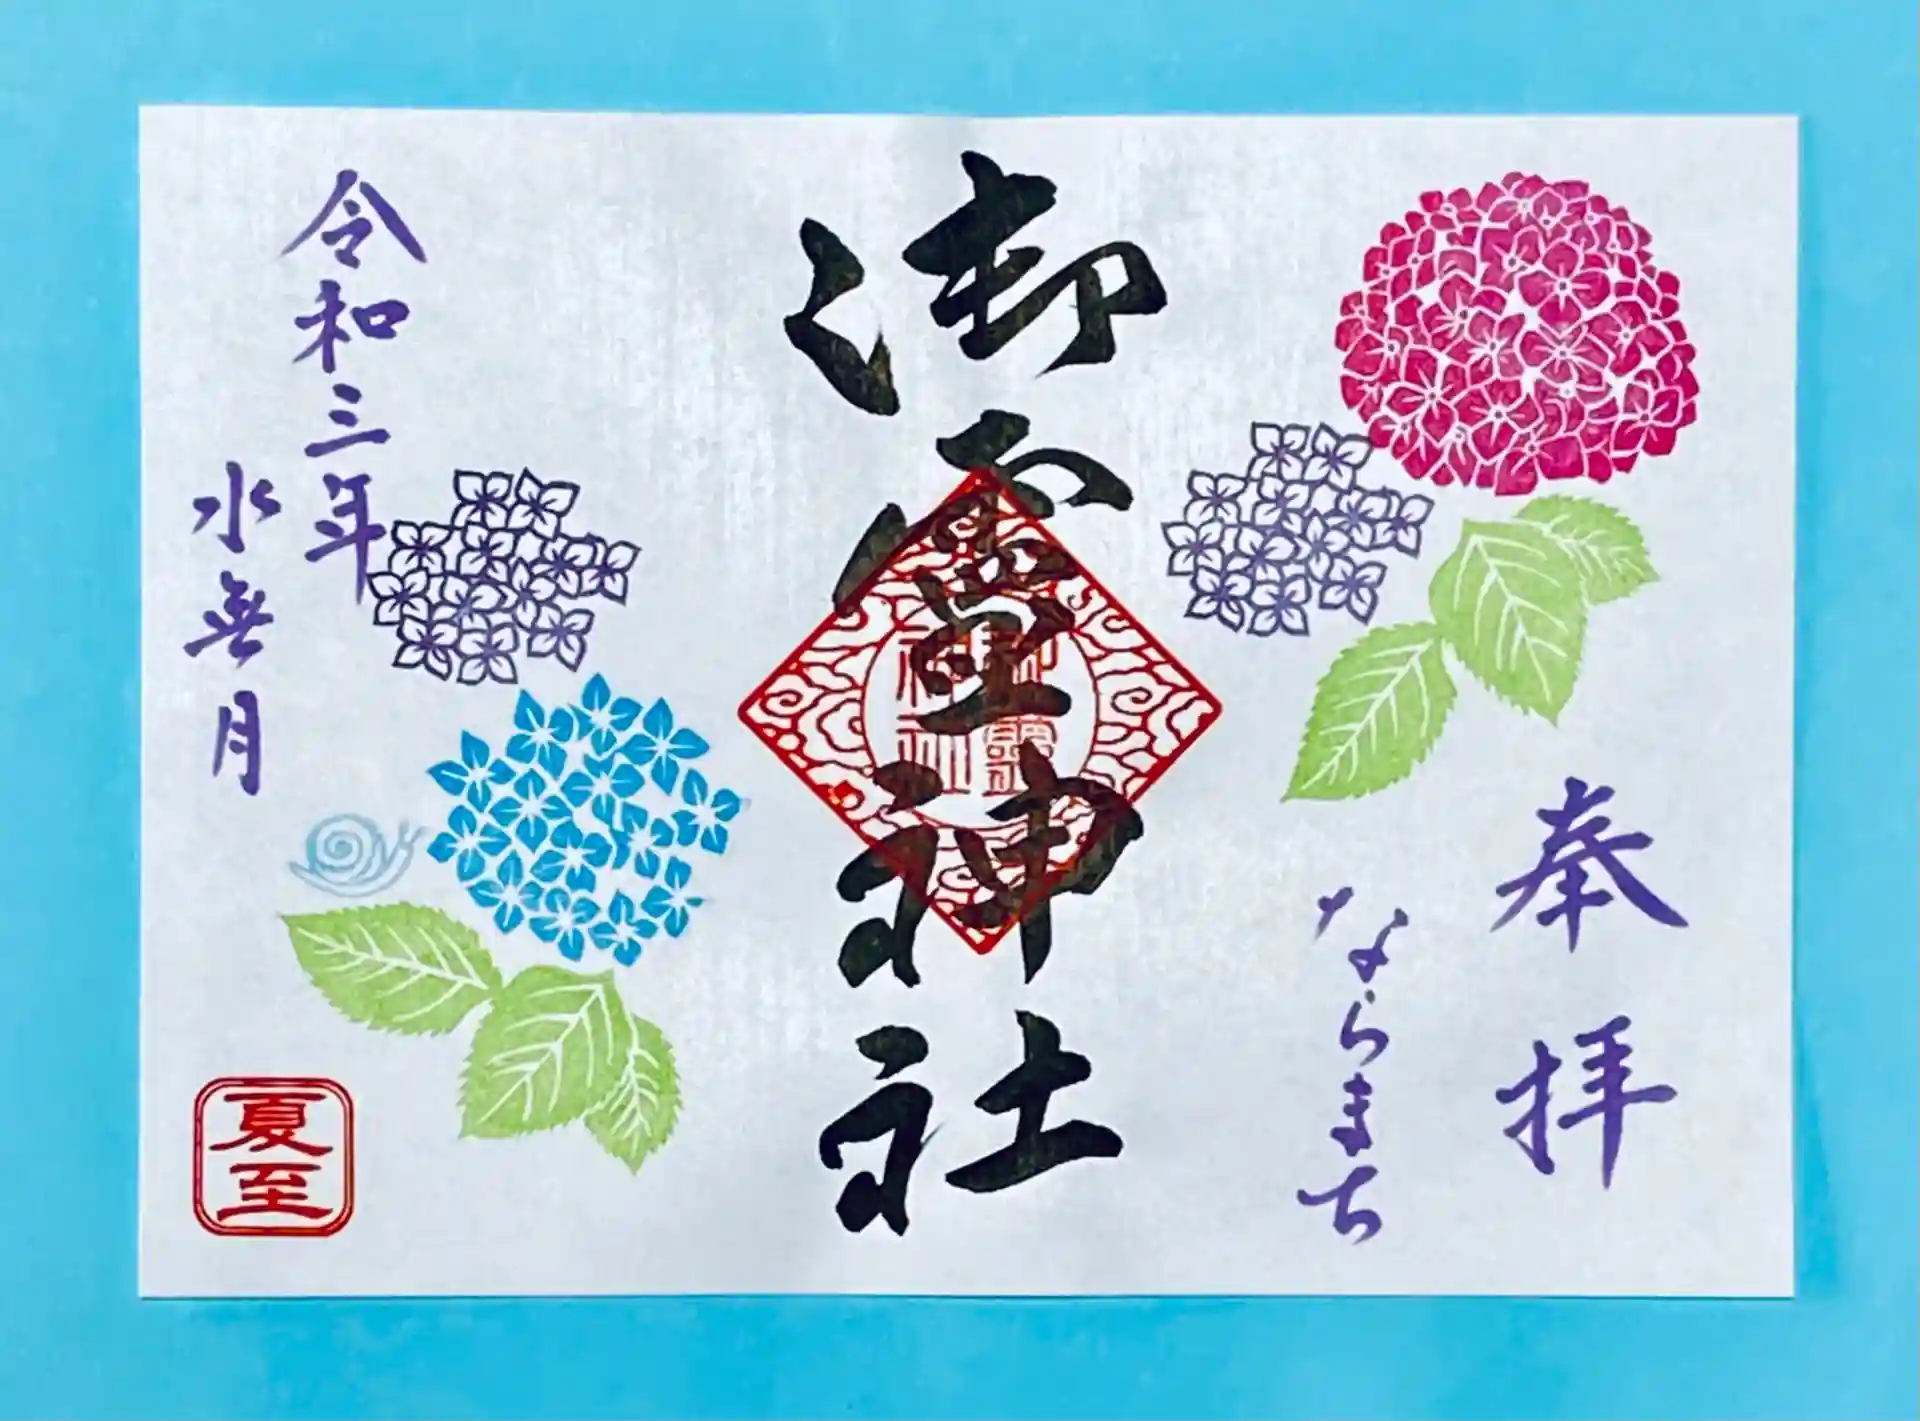 奉拝
ならまち
御霊神社
御霊
神社
令和三年
水無月
夏至